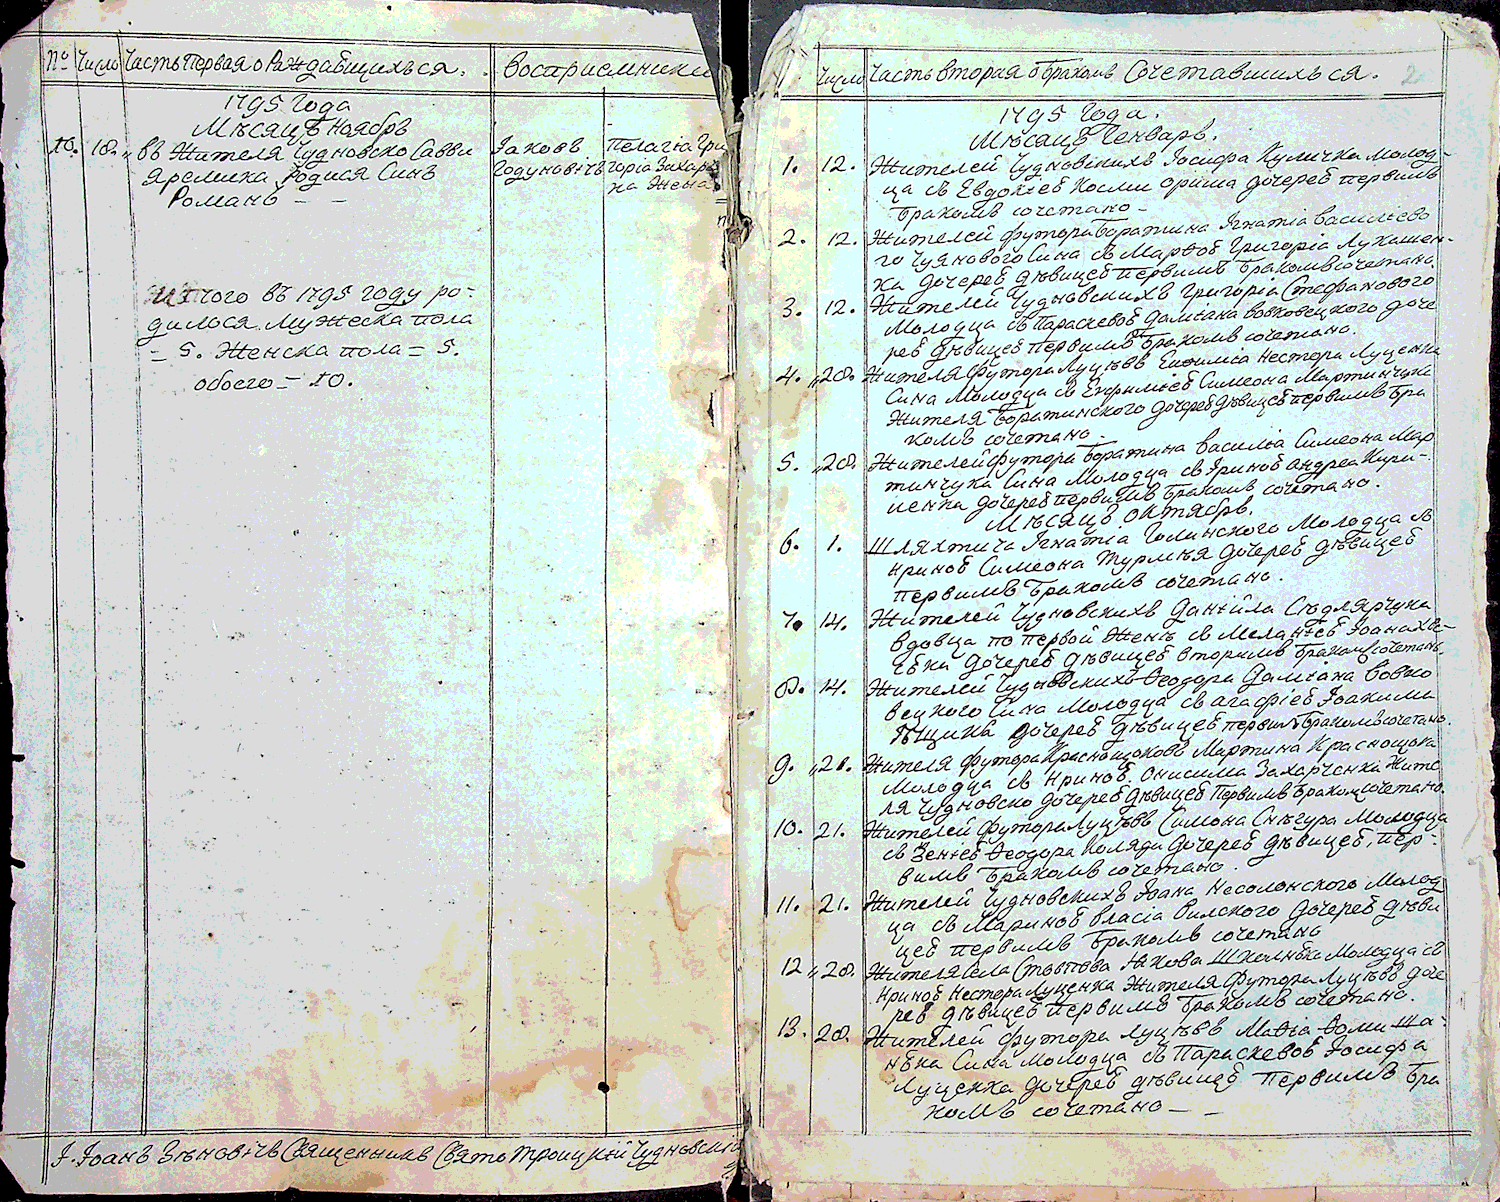 № Число Часть Первая о Раждабщихъся. Восприемники
1795 Года
Мѣсяцъ Ноябрь
10. 18. въ Жителя Чудновско Савви Яковъ Пелагіа Гри
Яремика родися Синъ Годуновичъ горіа Захаре
Романъ — — на Жена
Итого въ 1795 году ро-
дилося. Мужеска пола
= 5. Женска пола = 5.
обоего = 10.
І. Іоанъ Зѣновичъ Священникъ Свято Троицкій Чудновскій
Число Часть вторая о бракомъ Сочетавшихься. 2
1795 Года.
Мѣсяцъ Генварь.
1. 12. Жителей Чудновскихъ Іосифа Куличка молод-
ца съ Евдокіеб Косми дочереб первимъ
бракомъ сочетано —
2. 12. Жителей футора Боратина Ігнатіа Васильево
го Чуянового Сина съ Марѳоб Григоріа Лукашен-
ка дочереб дѣвицеб первимъ бракомъ сочетано.
3. 12. Жителей Чудновскихъ Григоріа Стефанового
Молодца съ Параскевоб Даміана Вовковецкого доче
реб дѣвицеб первимъ бракомъ сочетано.
4. 28. Жителя футора Луцѣвъ Нестора Луценка
Сина Молодца съ Евфиміеб Симеона Мартинчука
Жителя Боратинского дочереб дѣвицеб первимъ бра
комъ сочетано
5. 28. Жителей футора Боратина Василіа Симеона Мар
тинчука Сина Молодца съ Іриноб Андреа Кири-
ленка дочереб первимъ бракомъ сочетано.
Мѣсяцъ Октябрь.
6. 1. Шляхтича Ігнатіа Голинского Молодца съ
Ириноб Симеона дочереб дѣвицеб
первимъ бракомъ сочетано.
7. 14. Жителей Чудновскихъ Даніила Сѣдлярчука
вдовца по первой женѣ съ Меланіеб Іоана
дочереб дѣвицеб вторимъ бракомъ сочетанъ.
8. 14. Жителей Чудновскихъ Ѳеодора Даміана Вовко
вецкого Сина Молодца съ агафіеб Іоакима
дочереб дѣвицеб первимъ бракомъ сочетано.
9. 21. Жителя футора Краснощоковъ Мартина Краснощока
Молодца съ Ириноб Онисима Захарченка Жите
ля Чудновско дочереб дѣвицеб Первимъ бракомъ сочетано.
10. 21. Жителей футора Луцѣвъ Симона Снѣгура Молодца
съ Зеніеб Ѳеодора Коляди дочереб дѣвицеб, пер-
вимъ бракомъ сочетано.
11. 21. Жителей Чудновскихъ Іоана Несолонского Молод
ца съ Мариноб Власіа Вилского дочереб дѣви
цеб первимъ бракомъ сочетано
12 28. Жителя Села Якова Молодца съ
Ириноб Нестора Луценка Жителя футора Луцѣвъ доче
реб дѣвицеб первимъ бракомъ сочетано.
13. 28. Жителей футора Луцѣвъ Маѳіа Ѳоми Ша-
нѣка Сина Молодца съ Параскевоб Іосифа
Луценка дочереб дѣвицеб первимъ бра
комъ сочетано — —